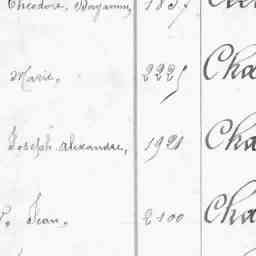 Théodore, Benjamin, 1837
Marie, 2225 Cha
Joseph Alexandre, 1921 Cha
P. Jean, 2100 Cha